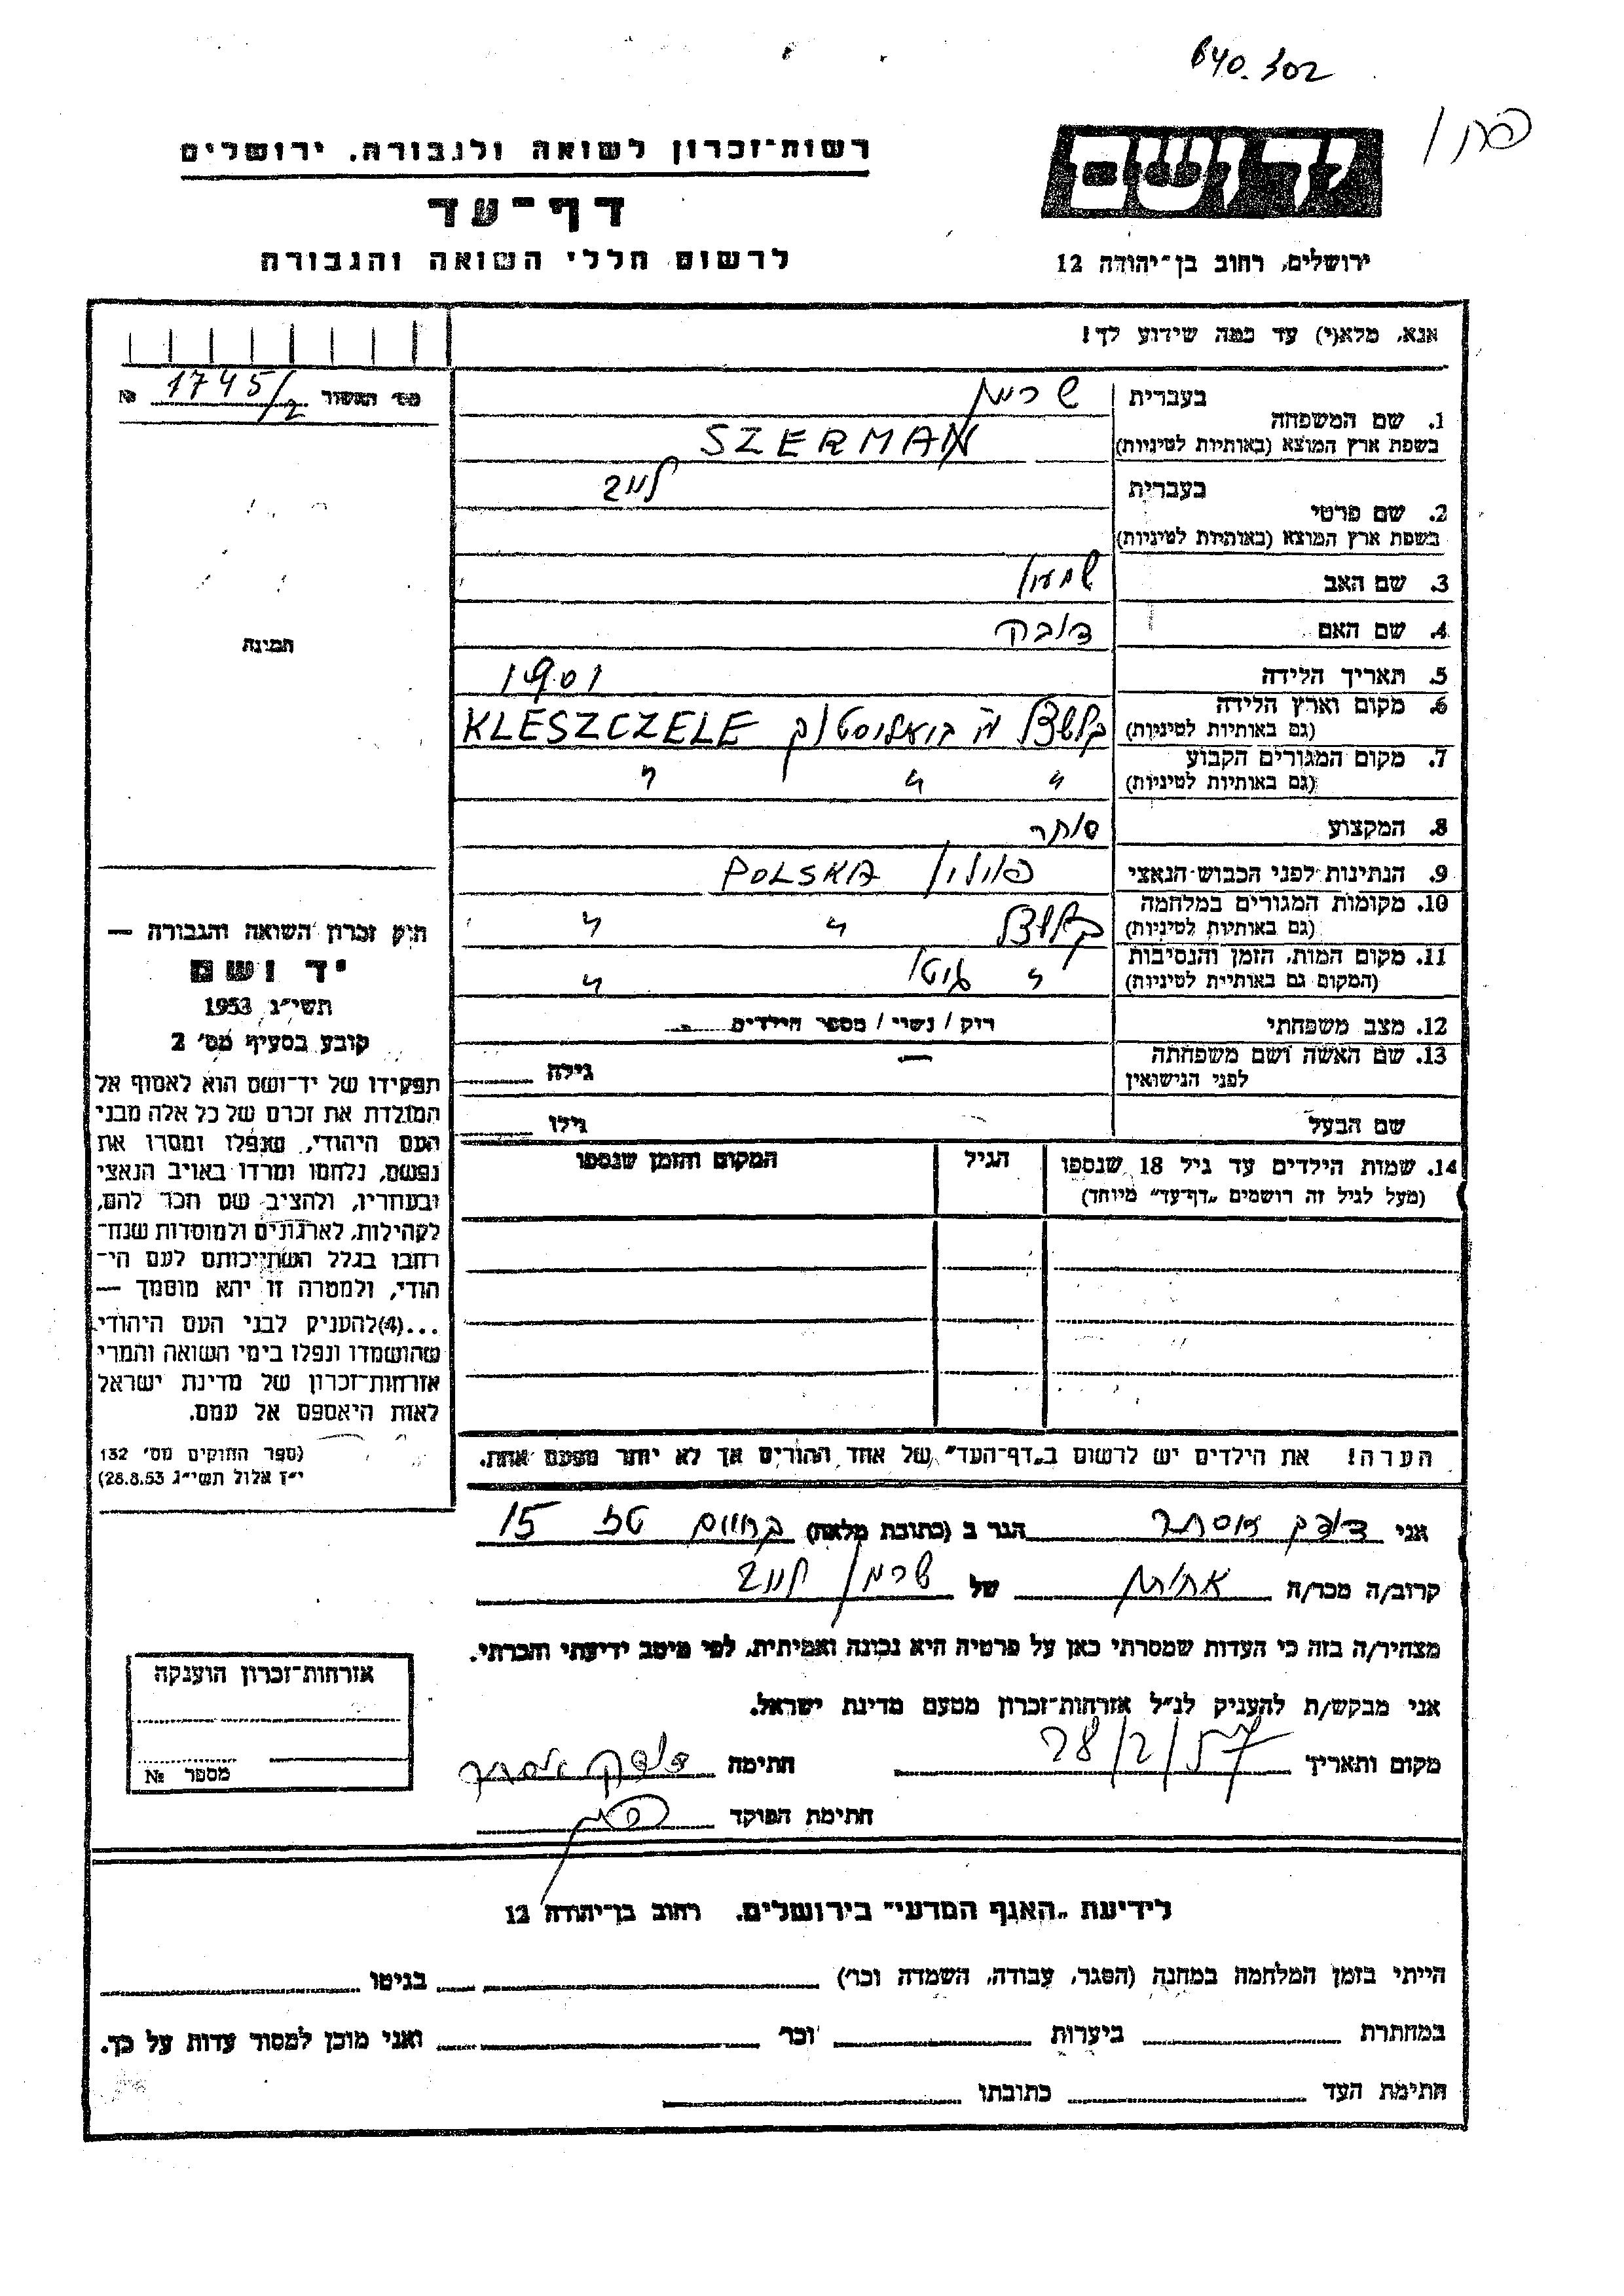 640.302
רשות־זכרון לשואה ולגבורה, ירושלים
דף־עד
לרשום חללי השואה והגבורה
ירושלים, רחוב בן־יהודה 12
אנא, מלא(י) עד כמה שידוע לך!
1745/2 №
1. שם המשפחה
בעברית שרמן
בשפת ארץ המוצא (באותיות לטיניות) SZERMAN
2. שם פרטי
בעברית לייב
בשפת ארץ המוצא (באותיות לטיניות)
3. שם האב שמעון
4. שם האם
5. תאריך הלידה 1901
6. מקום וארץ הלידה
(גם באותיות לטיניות) KLESZCZELE
7. מקום המגורים הקבוע " " "
(גם באותיות לטיניות)
8. המקצוע סוחר
9. הנתינות לפני הכבוש הנאצי פולין POLSKA
10. מקומות המגורים במלחמה " "
(גם באותיות לטיניות)
11. מקום המות, הזמן והנסיבות " גיטו "
(המקום גם באותיות לטיניות)
12. מצב משפחתי רוק / נשוי / מספר הילדים
13. שם האשה ושם משפחתה
לפני הנישואין
גילה
שם הבעל גילו
14. שמות הילדים עד גיל 18 שנספו
(מעל לגיל זה רושמים „דף־עד" מיוחד)
הגיל
המקום והזמן שנספו
הערה! את הילדים יש לרשום ב„דף־העד" של אחד ההורים אך לא יותר מפעם אחת.
תמונה
חוק זכרון השואה והגבורה —
יד ושם
תשי״ג 1953
קובע בסעיף מס׳ 2
תפקידו של יד־ושם הוא לאסוף אל
המולדת את זכרם של כל אלה מבני
העם היהודי, שנפלו ומסרו את
נפשם, נלחמו ומרדו באויב הנאצי
ובעוזריו, ולהציב שם וזכר להם,
לקהילות, לארגונים ולמוסדות שנח־
רבו בגלל השתייכותם לעם הי־
הודי, ולמטרה זו יהא מוסמך —
...(4)להעניק לבני העם היהודי
שהושמדו ונפלו בימי השואה והמרי
אזרחות־זכרון של מדינת ישראל
לאות היאספם אל עמם.
(ספר החוקים מס׳ 132
י״ז אלול תשי״ג 28.8.53)
אני אסתר הגר ב (כתובת מלאה) 15
קרוב/ה מכר/ה אחותו של שרמן לייב
מצהיר/ה בזה כי העדות שמסרתי כאן על פרטיה היא נכונה ואמיתית, לפי מיטב ידיעתי והכרתי.
אני מבקש/ת להעניק לנ״ל אזרחות־זכרון מטעם מדינת ישראל.
מקום ותאריך 28/2/57 חתימה
חתימת הפוקד
אזרחות־זכרון הוענקה
מספר №
לידיעת „האגף המדעי" בירושלים, רחוב בן־יהודה 12
הייתי בזמן המלחמה במחנה (הסגר, עבודה, השמדה וכו׳) בגיטו
במחתרת ביערות וכו׳ ואני מוכן למסור עדות על כך.
חתימת העד כתובתו